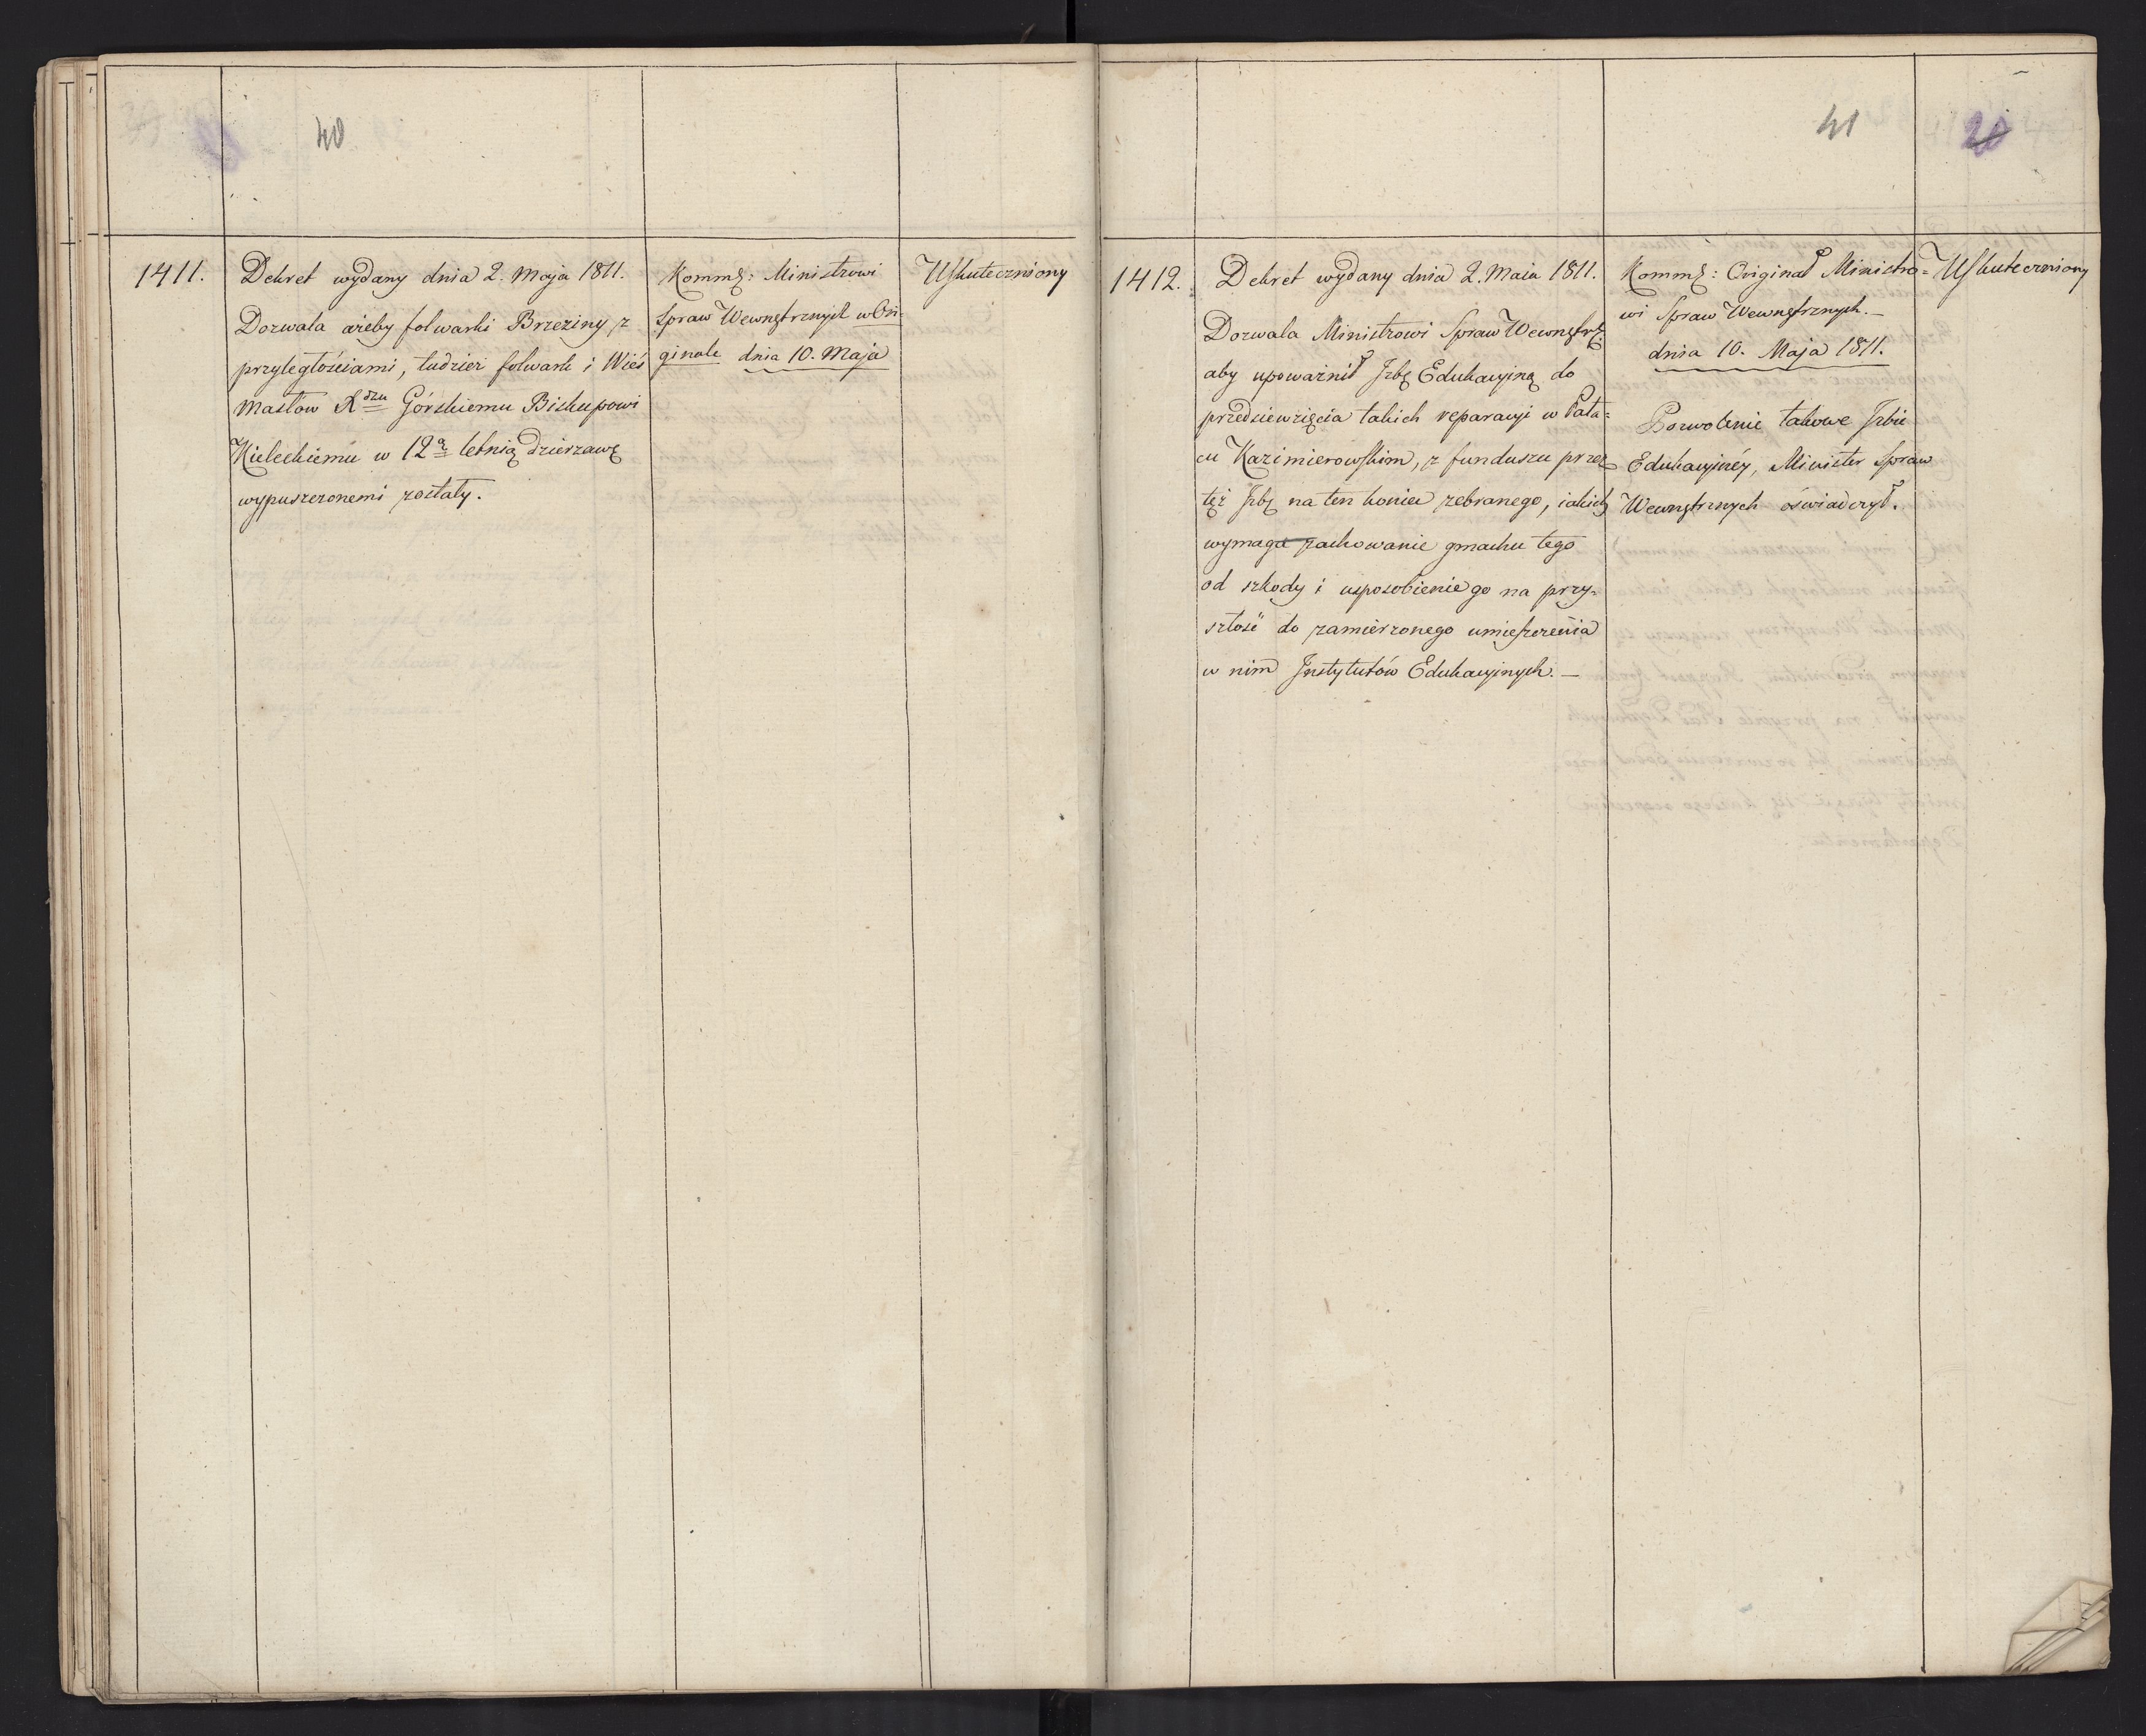 40
1411.
Dekret wydany dnia 2. Maja 1811.
Dozwala ażeby folwarki Brzeziny z
przyległościami, tudzież folwark i Wieś
Masłów Xdzu Górskiemu Biskupowi
Kieleckiemu w 12ą letnią Dzierzawę
wypuszczonemi zostały.
Kommẽ: Ministrowi
Spraw Wewnętrznych w Ori-
ginale dnia 10. Maja
Uskuteczniony
41
20
1412.
Dekret wydany dnia 2. Maia 1811.
Dozwala Ministrowi Spraw Wewnętrz:
aby upoważnił Izbę Edukacyiną do
przedsiewzięcia takich reparacyi w Pała=
cu Kazimierowskim, z funduszu przez
tęż Izbę na ten koniec zebranego, iakich
wymaga zachowanie gmachu tego
od szkody i usposobienie go na przy-
szłość do zamierzonego umieszczenia
w nim Instytutów Edukacyinych. —
Kommẽ: Original Ministro=
wi Spraw Wewnętrznych. —
dnia 10. Maja 1811.
Pozwolenie takowe Izbie
Edukacyinéy, Minister Spraw
Wewnętrznych oświadczył.
Uskuteczniony